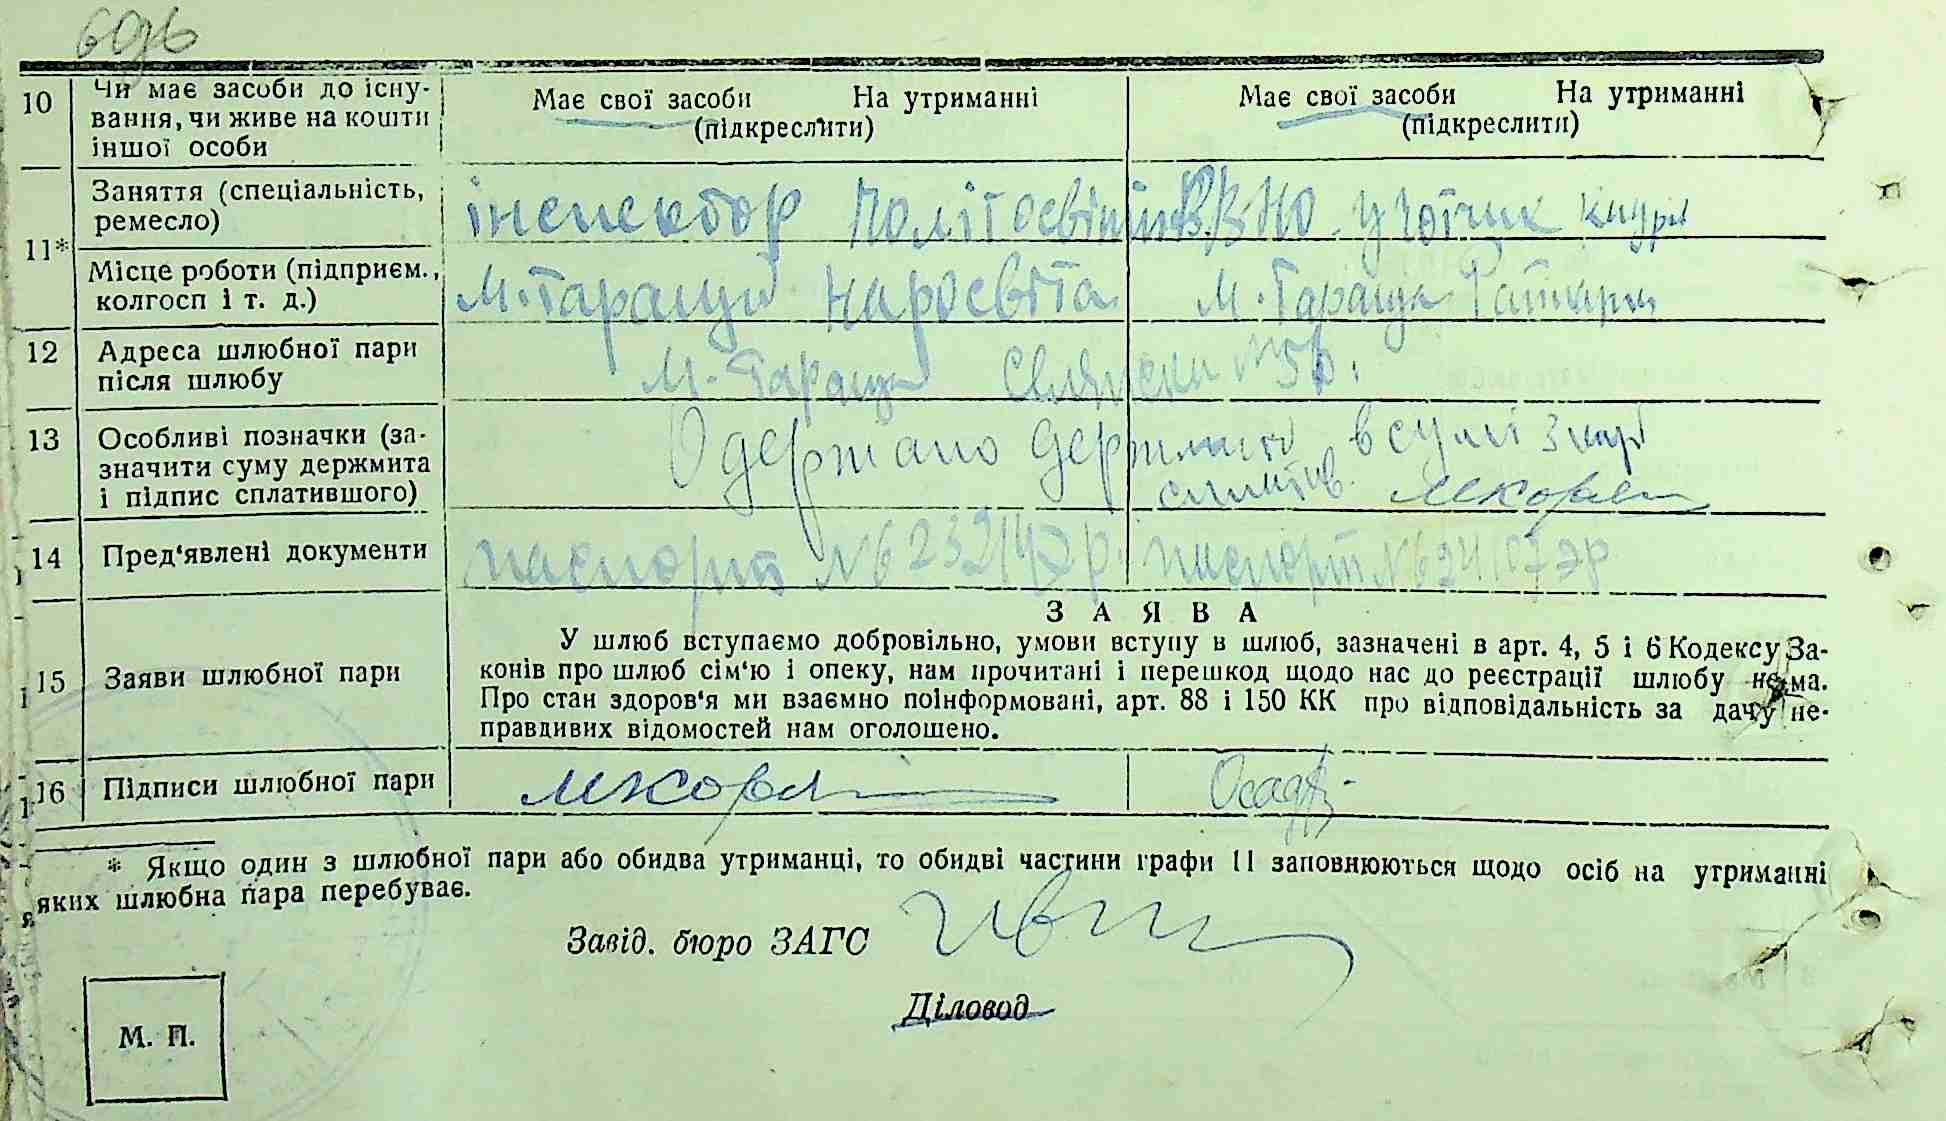 10
Чи має засоби до існу-
вання, чи живе на кошти
іншої особи
Має свої засоби На утриманні
(підкреслити)
Має свої засоби На утриманні
(підкреслити)
11*
Заняття (спеціальність,
ремесло)
інспектор Політосвіти РВНО
учотчик
Місце роботи (підприєм.,
колгосп і т. д.)
м. Тараща Наросвіта
м. Тараща
12
Адреса шлюбної пари
після шлюбу
м. Тараща
13
Особливі позначки (за-
значити суму держмита
і підпис сплатившого)
Одержано держмито в сумі 3 кар
сплатив
14
Пред'явлені документи
паспорт №
паспорт №
15
Заяви шлюбної пари
ЗАЯВА
У шлюб вступаємо добровільно, умови вступу в шлюб, зазначені в арт. 4, 5 і 6 Кодексу За-
конів про шлюб сім'ю і опеку, нам прочитані і перешкод щодо нас до реєстрації шлюбу нема.
Про стан здоров'я ми взаємно поінформовані, арт. 88 і 150 КК про відповідальність за дачу не-
правдивих відомостей нам оголошено.
16
Підписи шлюбної пари
* Якщо один з шлюбної пари або обидва утриманці, то обидві частини графи 11 заповнюються щодо осіб на утриманні
яких шлюбна пара перебуває.
Завід. бюро ЗАГС
Діловод
М. П.